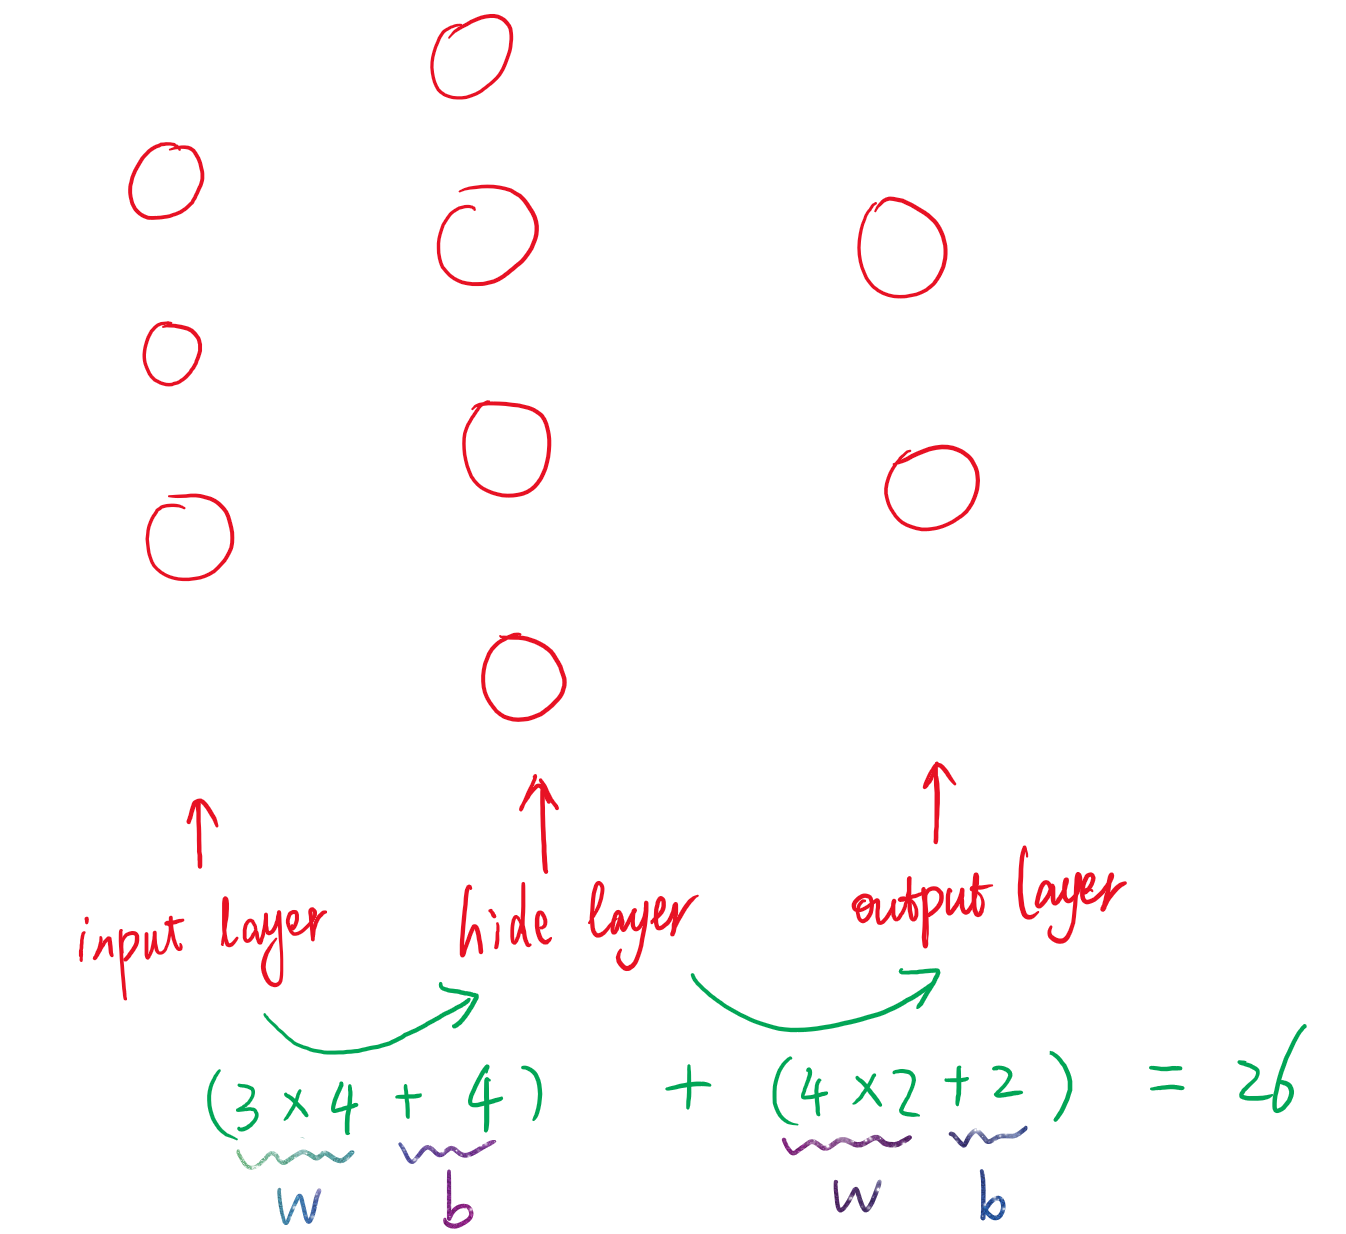 input layer hide layer output layer
(3 × 4 + 4) + (4 × 2 + 2) = 26
w b w b